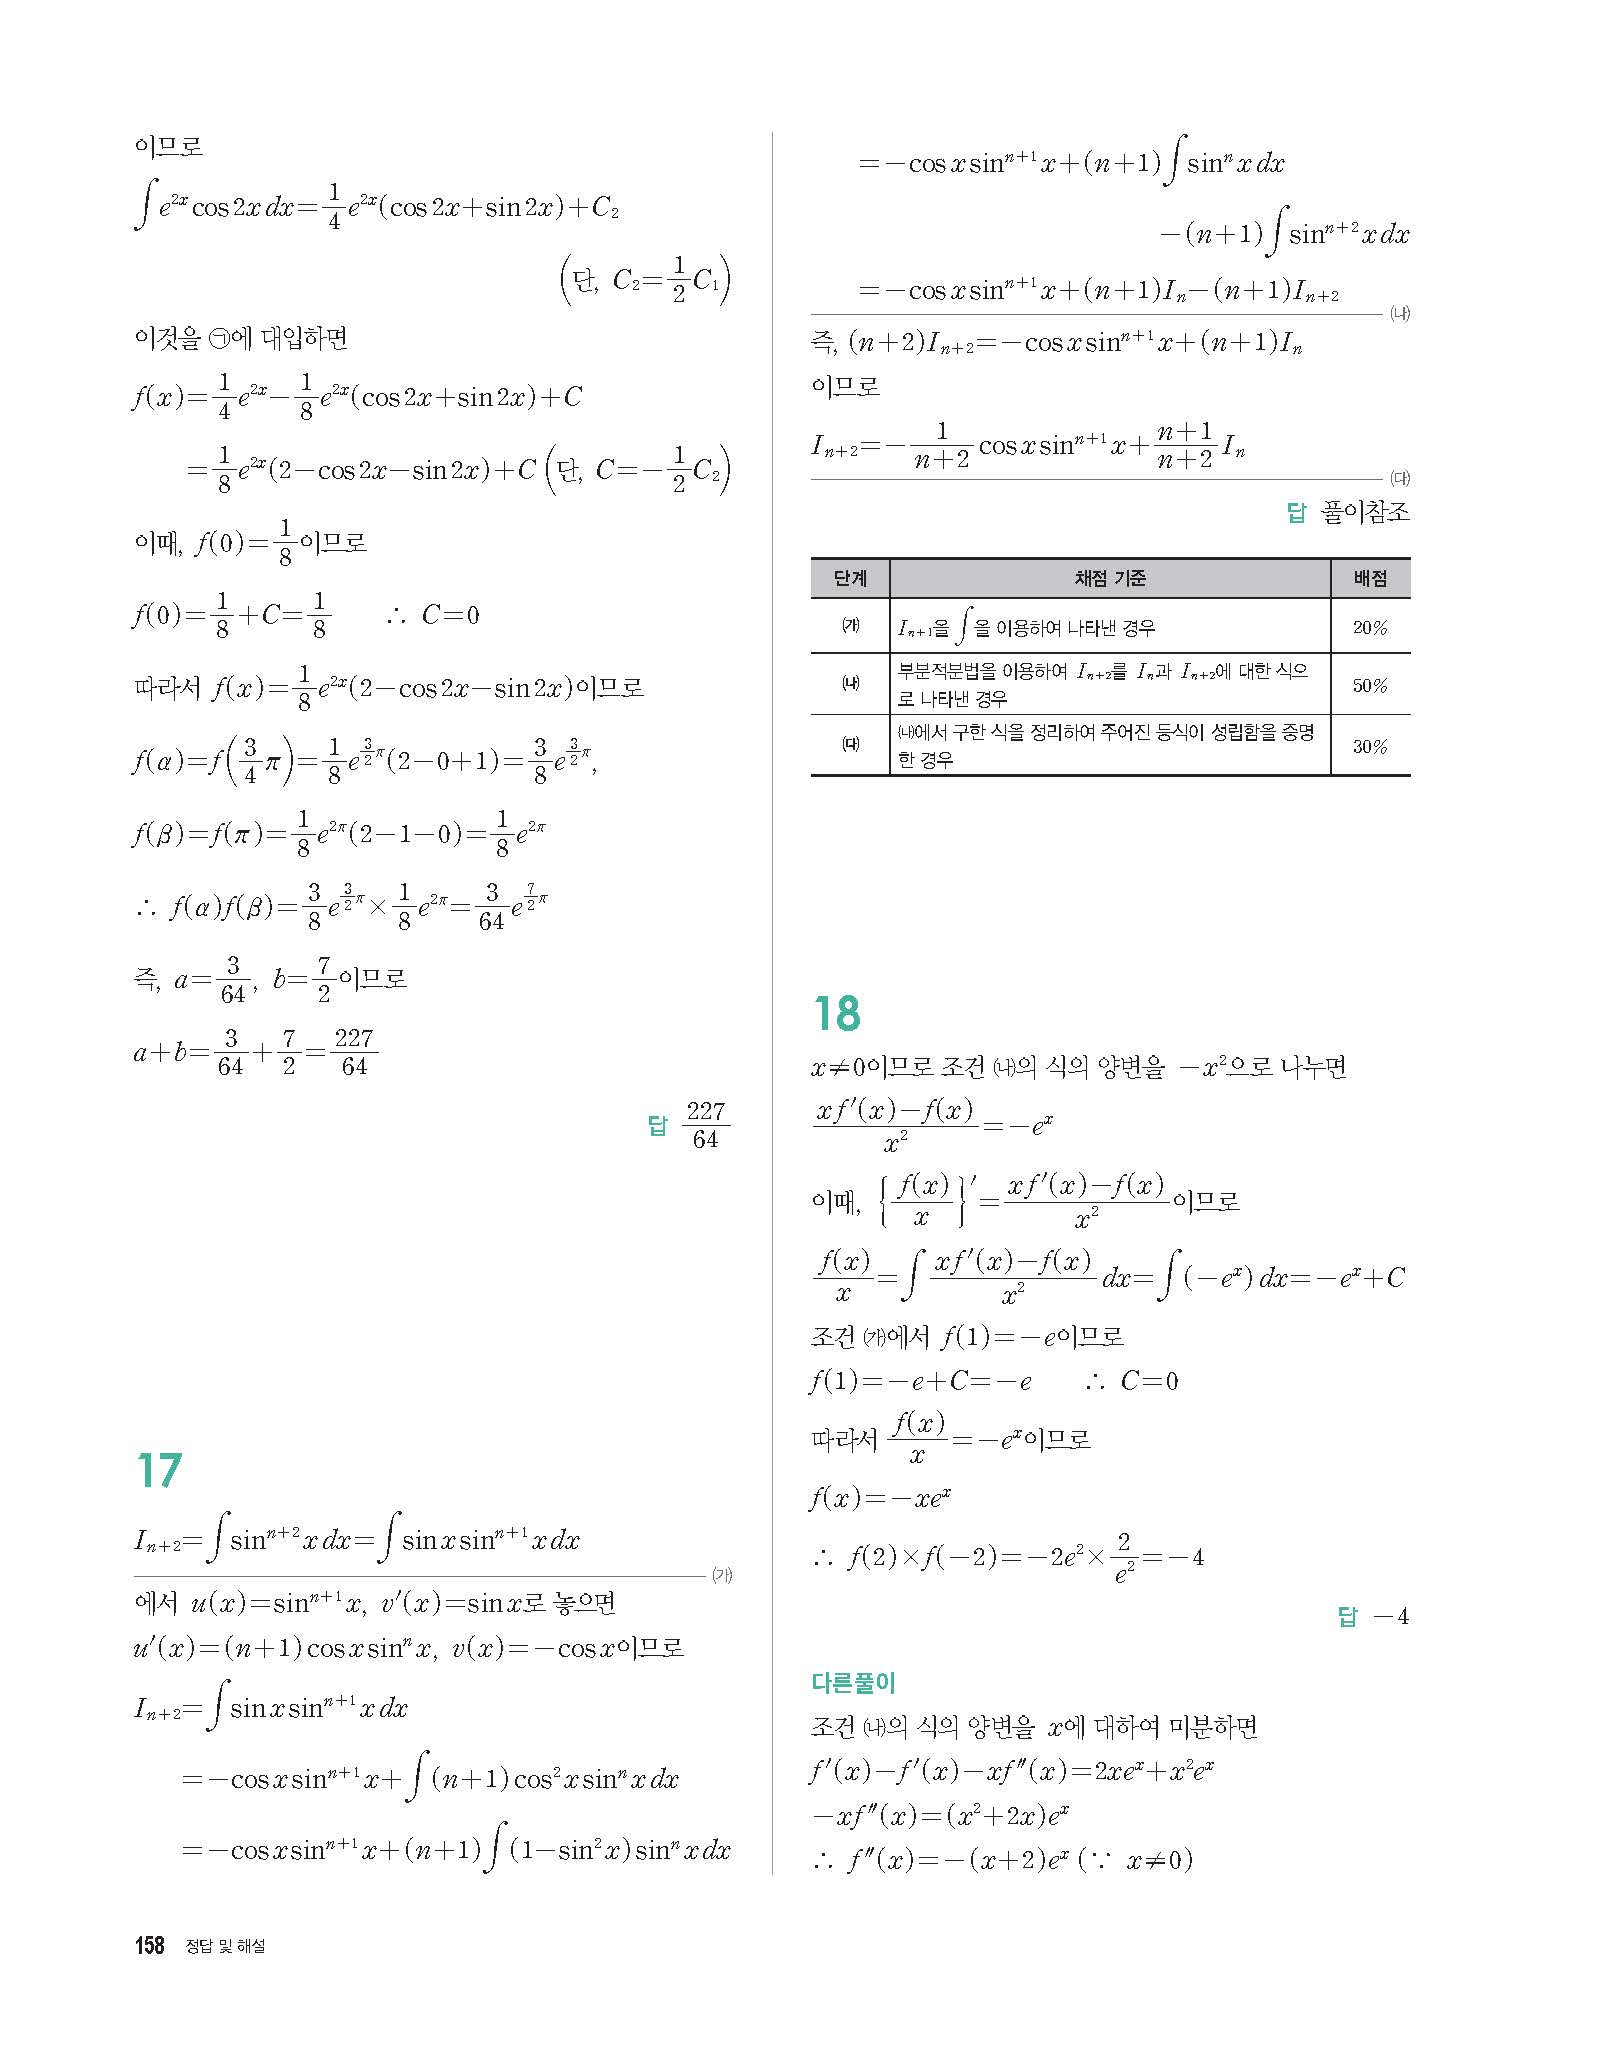 이므로
∫e^{2x}cos2x dx=\frac{1}{4}e^{2x}(cos2x+sin2x)+C₂
(단, C₂=\frac{1}{2}C₁)
이것을 ㉠에 대입하면
f(x)=\frac{1}{4}e^{2x}-\frac{1}{8}e^{2x}(cos2x+sin2x)+C
=\frac{1}{8}e^{2x}(2-cos2x-sin2x)+C (단, C=-\frac{1}{2}C₂)
이때, f(0)=\frac{1}{8}이므로
f(0)=\frac{1}{8}+C=\frac{1}{8} ∴ C=0
따라서 f(x)=\frac{1}{8}e^{2x}(2-cos2x-sin2x)이므로
f(α)=f(\frac{3}{4}π)=\frac{1}{8}e^{\frac{3}{2}π}(2-0+1)=\frac{3}{8}e^{\frac{3}{2}π},
f(β)=f(π)=\frac{1}{8}e^{2π}(2-1-0)=\frac{1}{8}e^{2π}
∴ f(α)f(β)=\frac{3}{8}e^{\frac{3}{2}π}×\frac{1}{8}e^{2π}=\frac{3}{64}e^{\frac{7}{2}π}
즉, a=\frac{3}{64}, b=\frac{7}{2}이므로
a+b=\frac{3}{64}+\frac{7}{2}=\frac{227}{64}
답 \frac{227}{64}
17
I_{n+2}=∫sin^{n+2}x dx=∫sinx sin^{n+1}x dx
㈎
에서 u(x)=sin^{n+1}x, v′(x)=sinx로 놓으면
u′(x)=(n+1)cosx sin^{n}x, v(x)=-cosx이므로
I_{n+2}=∫sinx sin^{n+1}x dx
=-cosx sin^{n+1}x+∫(n+1)cos²x sin^{n}x dx
=-cosx sin^{n+1}x+(n+1)∫(1-sin²x)sin^{n}x dx
=-cosx sin^{n+1}x+(n+1)∫sin^{n}x dx
-(n+1)∫sin^{n+2}x dx
=-cosx sin^{n+1}x+(n+1)I_{n}-(n+1)I_{n+2}
㈏
즉, (n+2)I_{n+2}=-cosx sin^{n+1}x+(n+1)I_{n}
이므로
I_{n+2}=-\frac{1}{n+2}cosx sin^{n+1}x+\frac{n+1}{n+2}I_{n}
㈐
답 풀이참조
단계 채점 기준 배점
㈎ I_{n+1}을 ∫을 이용하여 나타낸 경우 20%
㈏ 부분적분법을 이용하여 I_{n+2}를 I_{n}과 I_{n+2}에 대한 식으
로 나타낸 경우 50%
㈐ ㈏에서 구한 식을 정리하여 주어진 등식이 성립함을 증명
한 경우 30%
18
x≠0이므로 조건 ㈏의 식의 양변을 -x²으로 나누면
\frac{xf′(x)-f(x)}{x²}=-e^{x}
이때, {\frac{f(x)}{x}}′=\frac{xf′(x)-f(x)}{x²}이므로
\frac{f(x)}{x}=∫\frac{xf′(x)-f(x)}{x²}dx=∫(-e^{x})dx=-e^{x}+C
조건 ㈎에서 f(1)=-e이므로
f(1)=-e+C=-e ∴ C=0
따라서 \frac{f(x)}{x}=-e^{x}이므로
f(x)=-xe^{x}
∴ f(2)×f(-2)=-2e²×\frac{2}{e²}=-4
답 -4
다른풀이
조건 ㈏의 식의 양변을 x에 대하여 미분하면
f′(x)-f′(x)-xf″(x)=2xe^{x}+x²e^{x}
-xf″(x)=(x²+2x)e^{x}
∴ f″(x)=-(x+2)e^{x} (∵ x≠0)
158 정답 및 해설